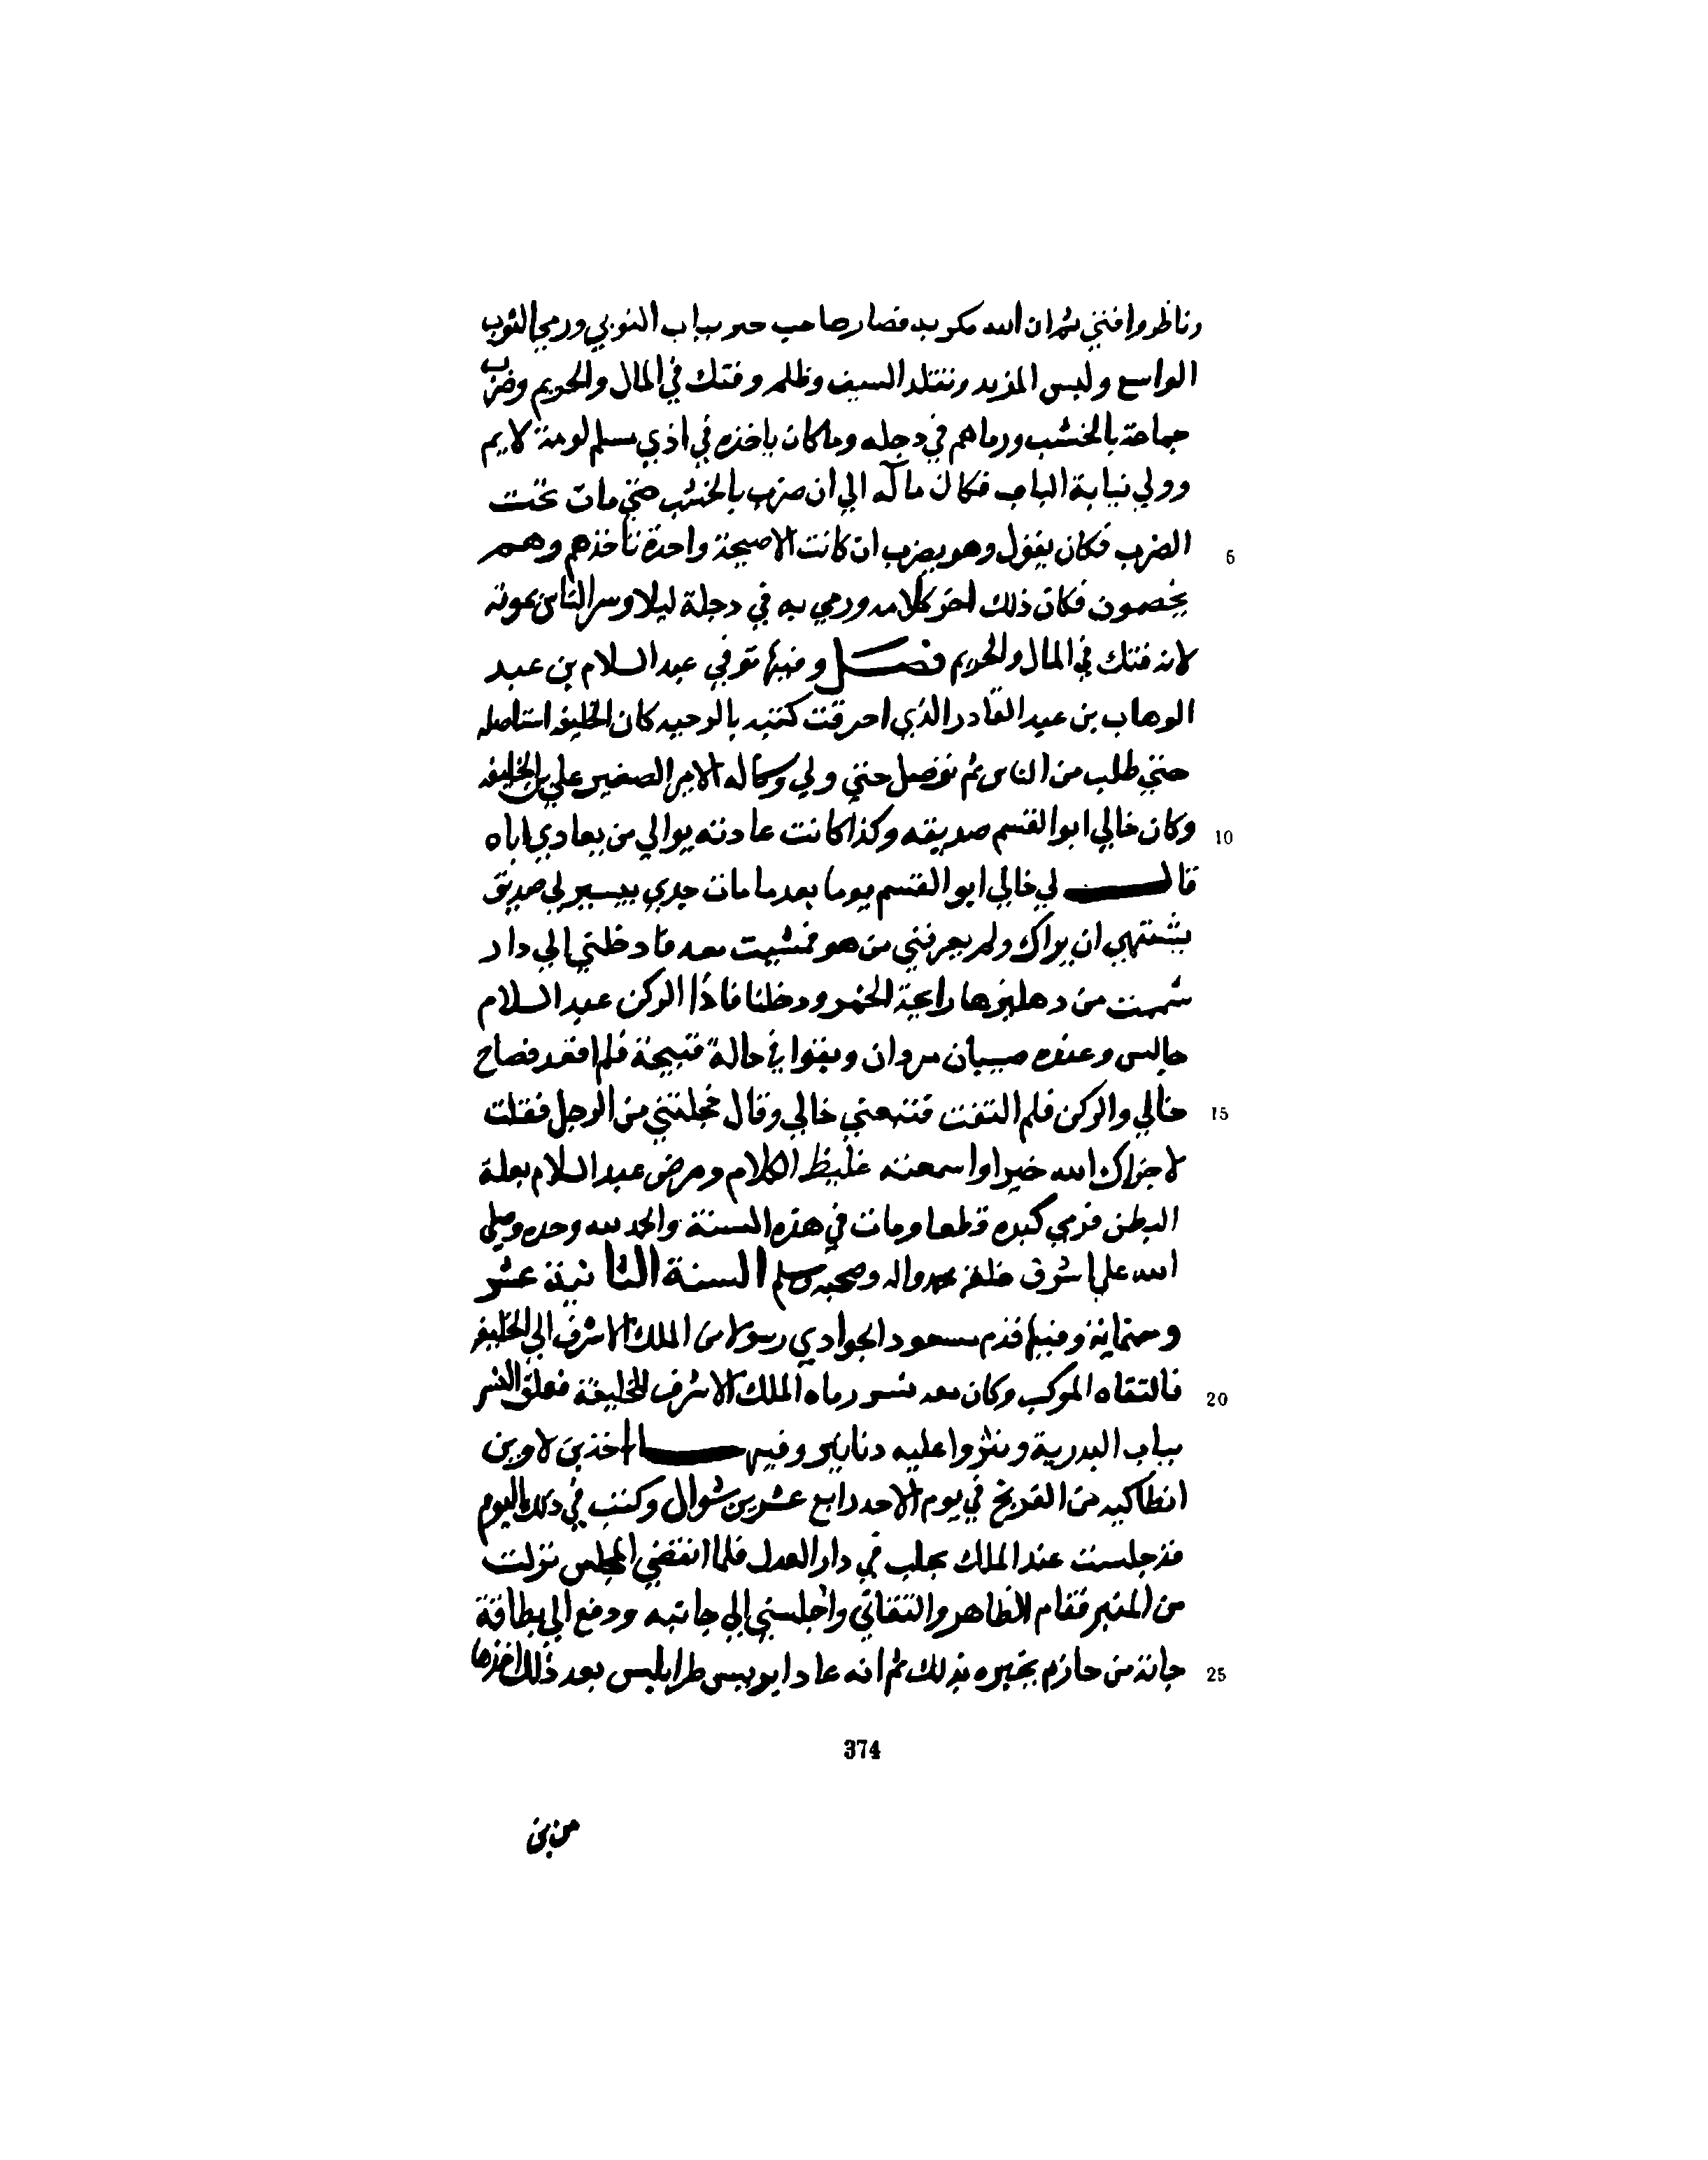 وناظر وافتى ثم ان الله مكر به فصار صاحب خبر بباب النوبي ورمي الثوب
الواسع ولبس المزيد وتقلد السيف وظلم وفتك في المال والحريم وضرب
جماعة بالخشب ورماهم في دجله وما كان ياخذه في اذي مسلم لومة لايم
وولي نيابة الباب فكان مآله الي ان ضرب بالخشب حتي مات تحت
الضرب فكان يقول وهو يضرب ان كانت الا صيحة واحدة تاخذهم وهم
يخصمون فكان ذلك اخر كلامه ورمي به في دجلة ليلا وسر الناس بموته
لانه فتك في المال والحريم فصل وفيها توفي عبد السلام بن عبد
الوهاب بن عبد القادر الذي احرقت كتبه بالرحبه كان الخليفه استاصله
حتي طلب من الناس ثم توصل حتي ولي وكاله الامير الصغير علي بن الخليفه
وكان خالي ابو القسم صديقه وكذا كانت عادته يوالي من يعادي اباه
قال لي خالي ابو القسم يوما بعد ما مات جدي بيسير لي صديق
يشتهي ان يراك ولم يعرفني من هو فمشيت معه فادخلني الي دار
شممت من دهليزها رايحة الخمر ودخلنا فاذا الركن عبد السلام
جالس وعنده صبيان مردان وبقوا في حالة قبيحة فلم اقعد فصاح
خالي والركن فلم التفت فتبعني خالي وقال خجلتني من الرجل فقلت
لا جزاك الله خيرا واسمعته غليظ الكلام ومرض عبد السلام بعلة
البطن فرمي كبده قطعا ومات في هذه السنة والحمد لله وحده وصلى
الله علي اشرف خلقه محمد واله وصحبه وسلم السنة الثانية عشر
وستماية وفيها قدم مسعود الجوادي رسولا من الملك الاشرف الي الخليفه
فالتقاه الموكب وكان معه نسر رماه الملك الاشرف للخليفة فعلق النسر
بباب البدرية ونثروا عليه دنانير وفيها اخذ بن لاون
انطاكيه من الفرنج في يوم الاحد رابع عشرين شوال وكنت في ذلك اليوم
قد جلست عند الملك بحلب في دار العدل فلما انقضي المجلس نزلت
من المنبر فقام الظاهر والتقاني واجلسني الي جانبه ودفع الي بطاقة
جاته من حازم بخبره بذلك ثم انه عاد ابرنس طرابلس بعد ذلك اخذها
5
10
15
20
25
374
من بن